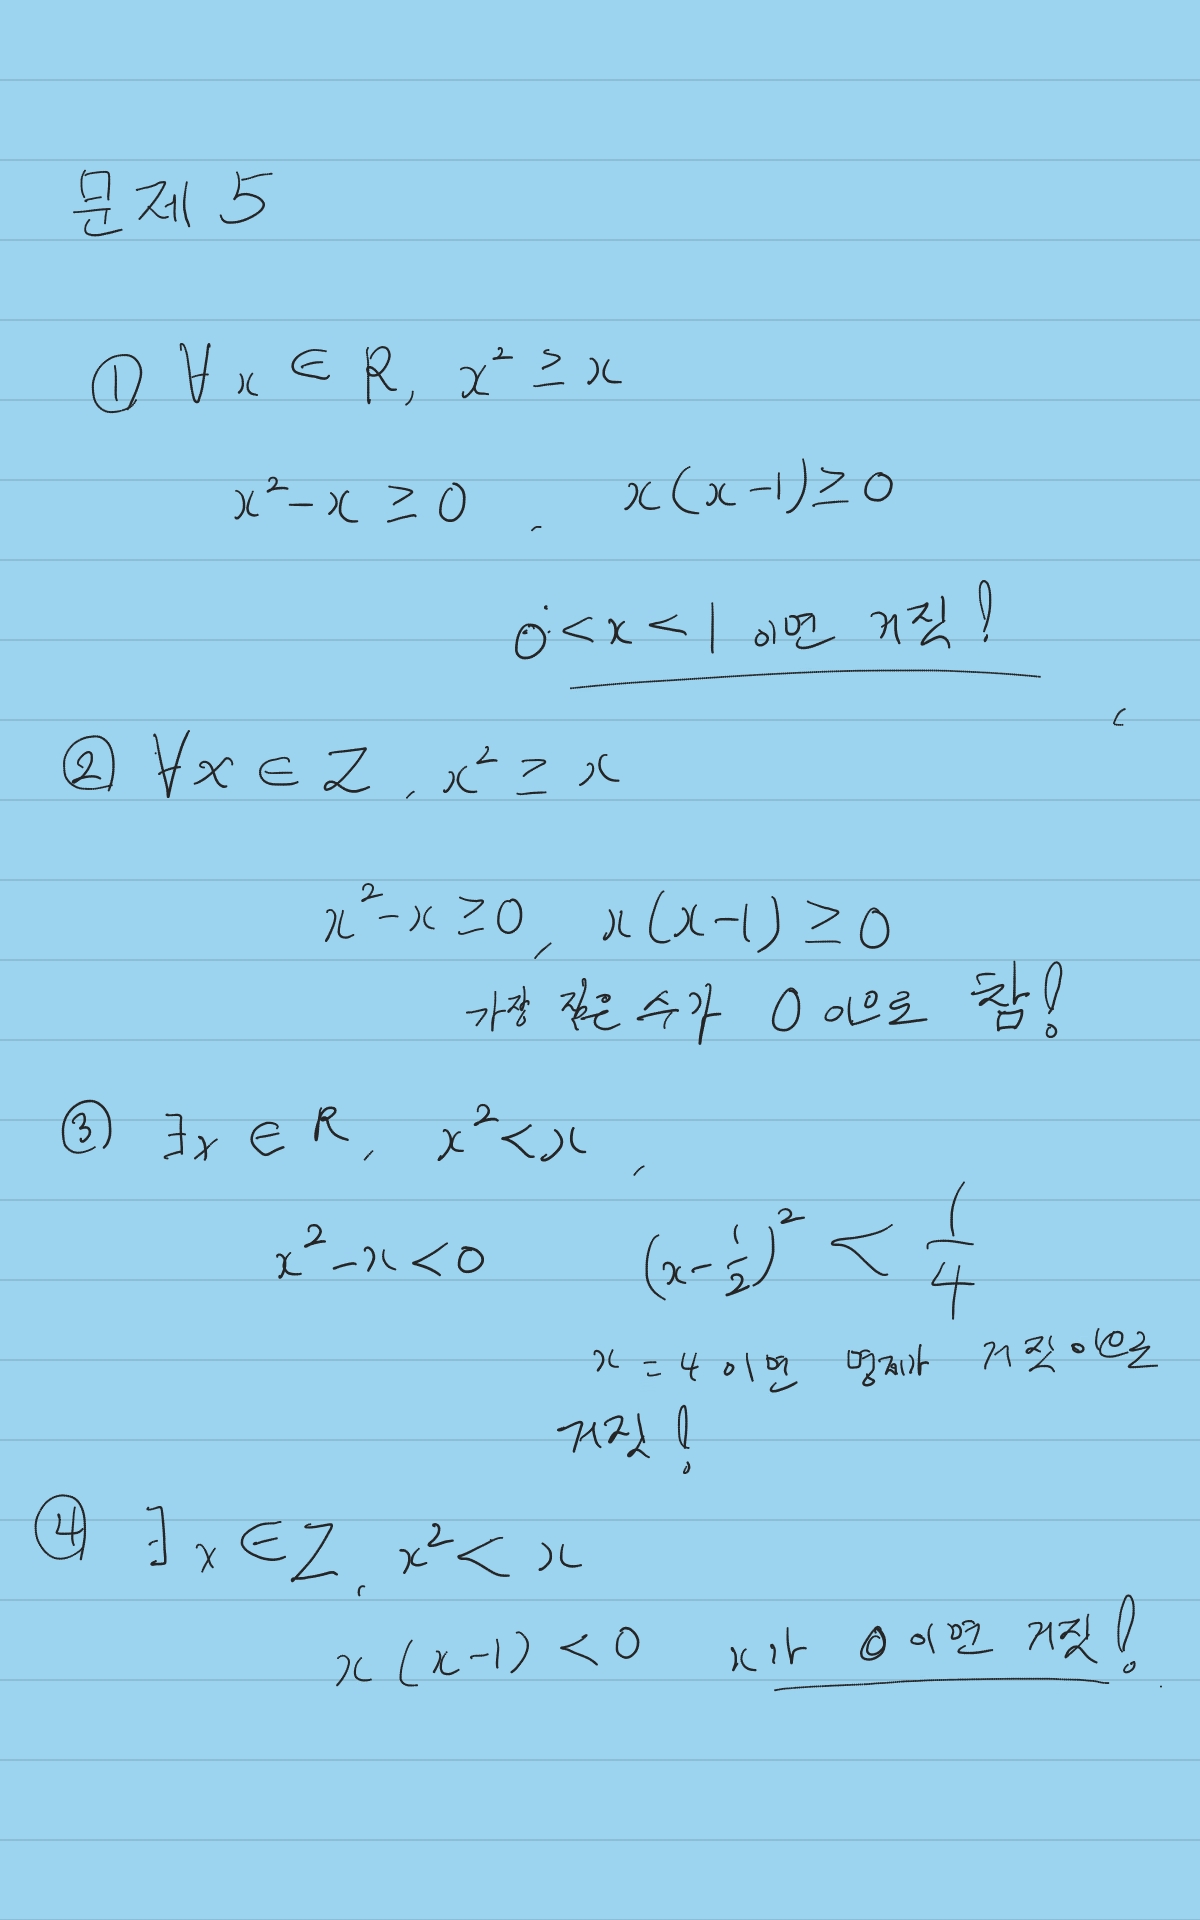 문제 5
① ∀x ∈ R, x² ≥ x
x² - x ≥ 0, x(x-1) ≥ 0
0 < x < 1 이면 거짓!
② ∀x ∈ Z, x² ≥ x
x² - x ≥ 0, x(x-1) ≥ 0
가장 작은 수가 0 이므로 참!
③ ∃x ∈ R, x² < x,
x² - x < 0 (x - 1/2)² < 1/4
x = 4 이면 명제가 거짓이므로
거짓!
④ ∃x ∈ Z, x² < x
x(x-1) < 0 x가 0 이면 거짓!